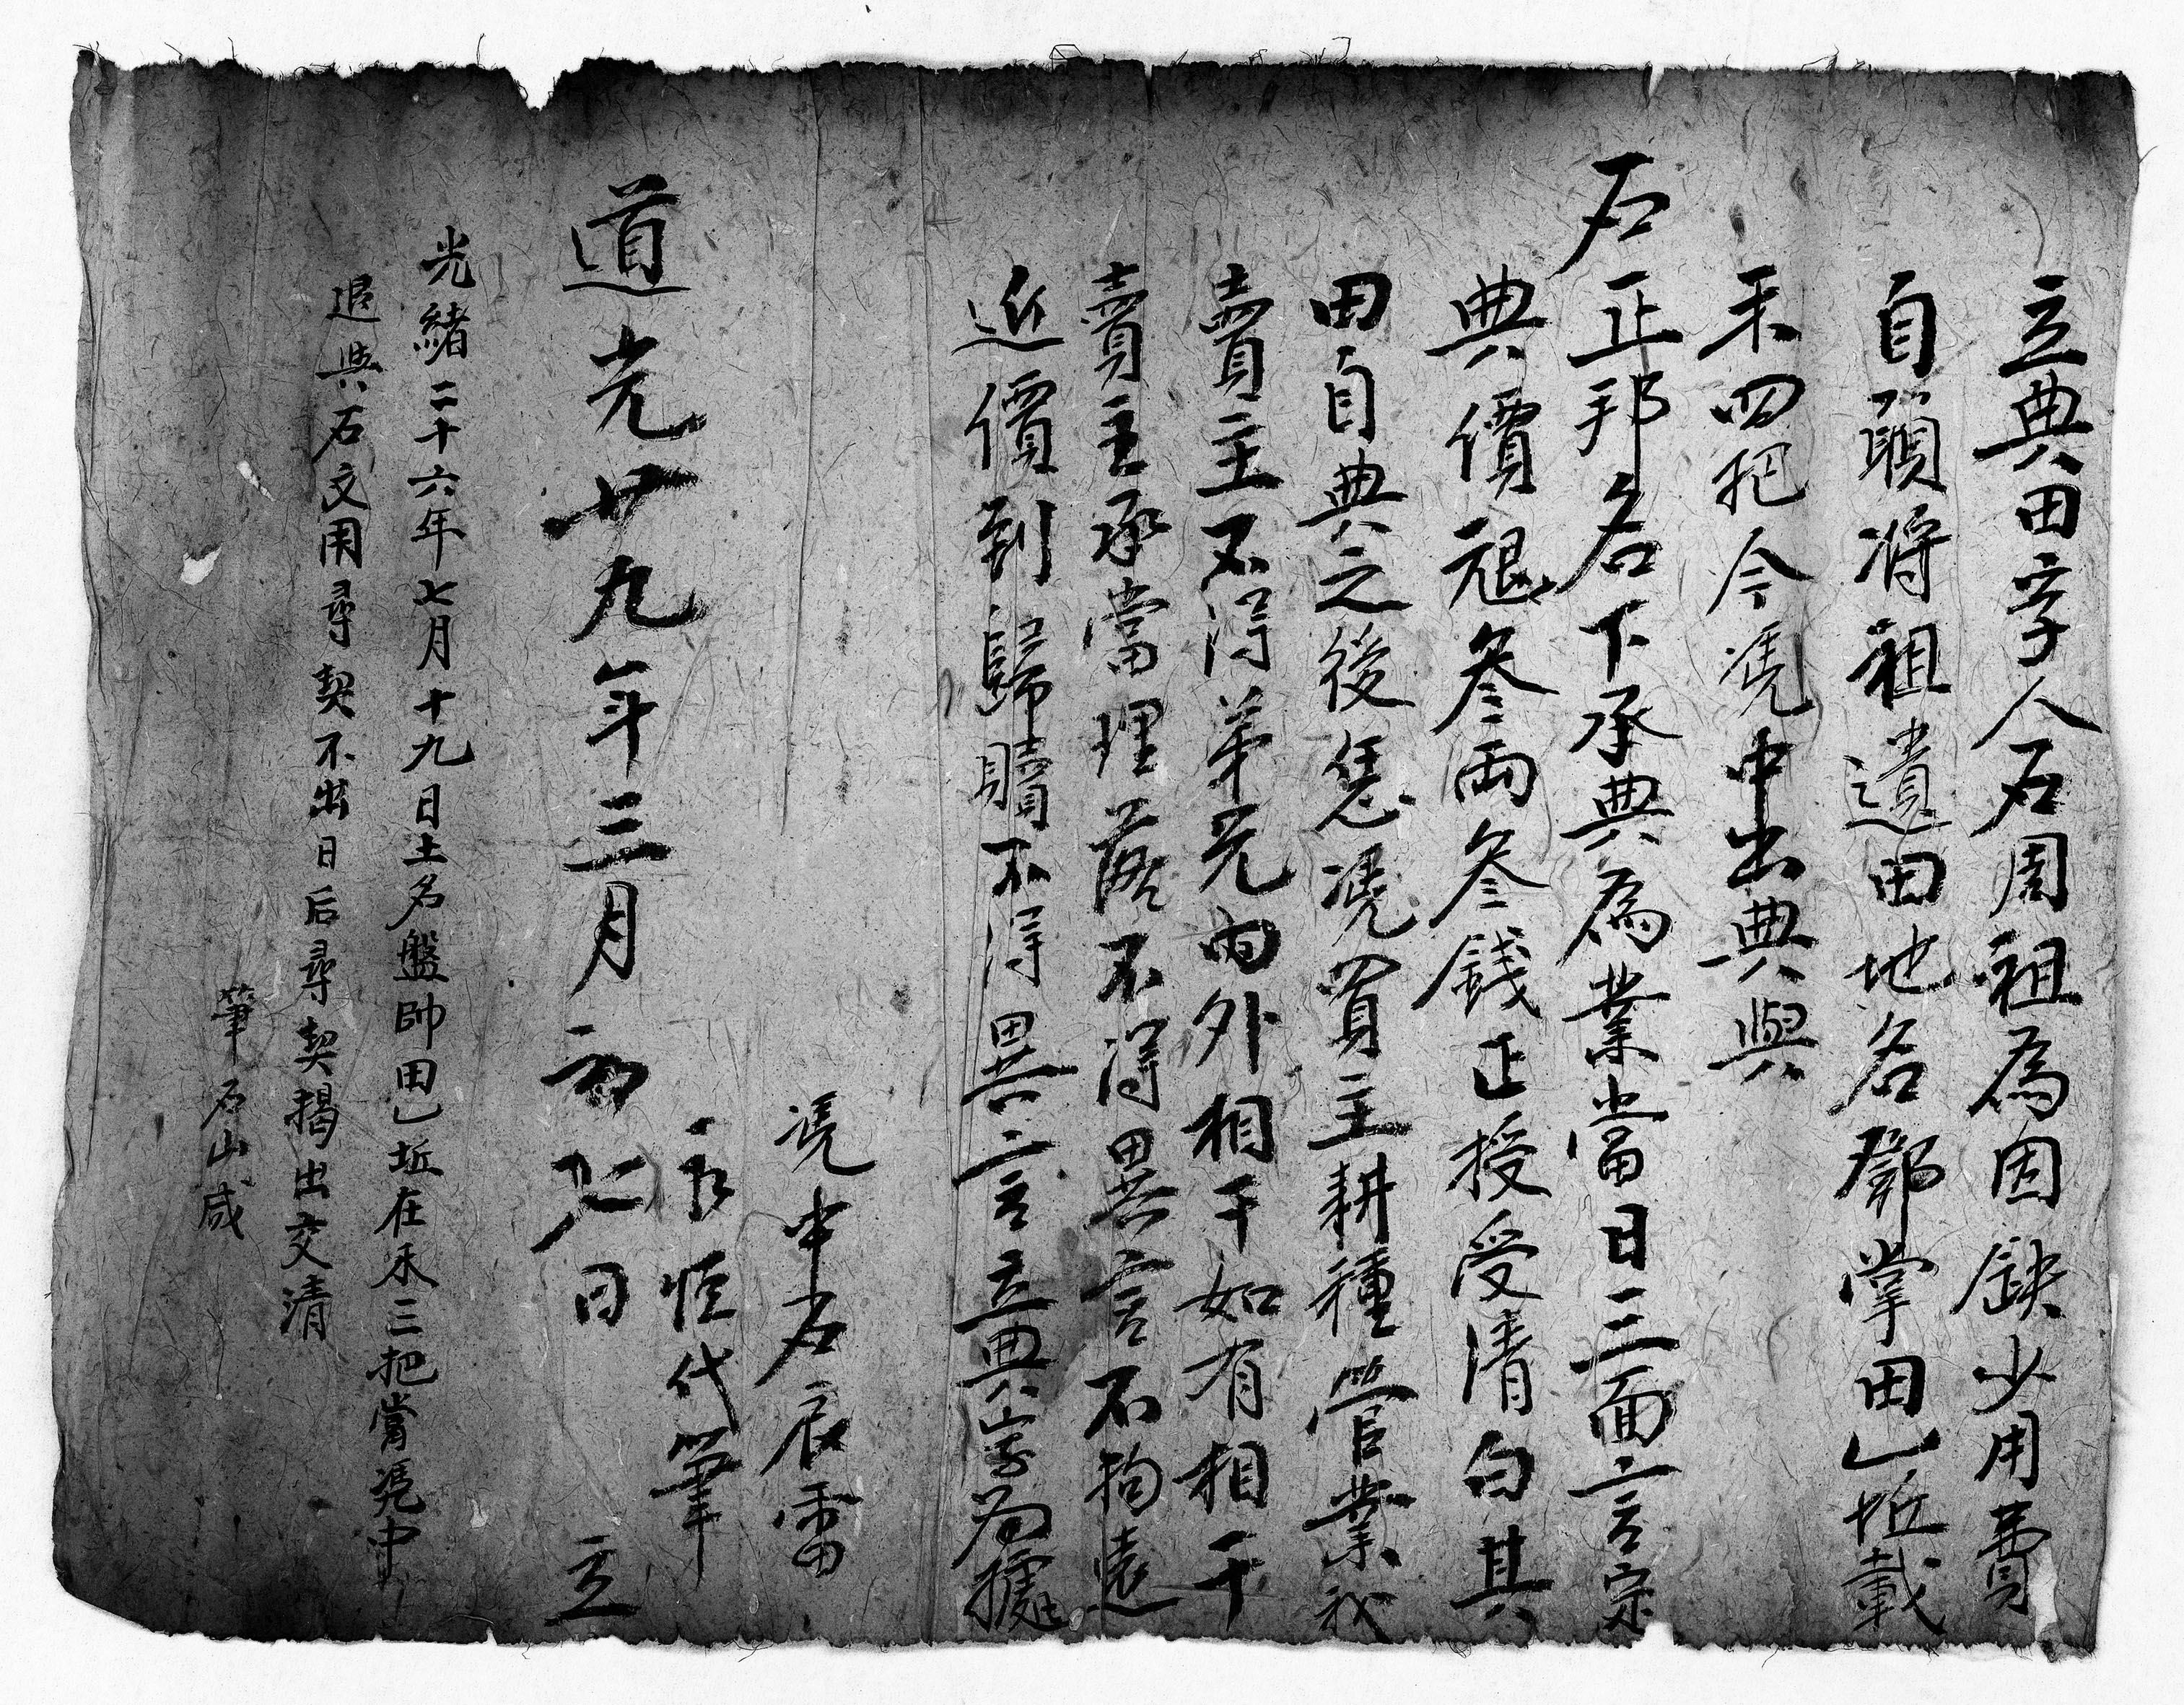 立典田字人石周祖為因缺少用費
自願將祖遺田地名鄧掌田乚坵載
禾四把今凴中出典與
石正邦名下承典為業當日三面言定
典價艮叄両叄錢正授受清白其
田自典之後恁凴買主耕種管業我
賣主不淂弟兄內外相干如有相干
賣主承當理落不淂異言不拘遠
近價到歸贖不淂異言立典字為據
凴中石辰雷
恒代筆
道光廿九年三月初八日 立
光緒二十六年七月十九日土名盤帥田乚坵在禾三把當凴中
退與石文用尋契不出日后尋契揭出交清
筆 石山咸